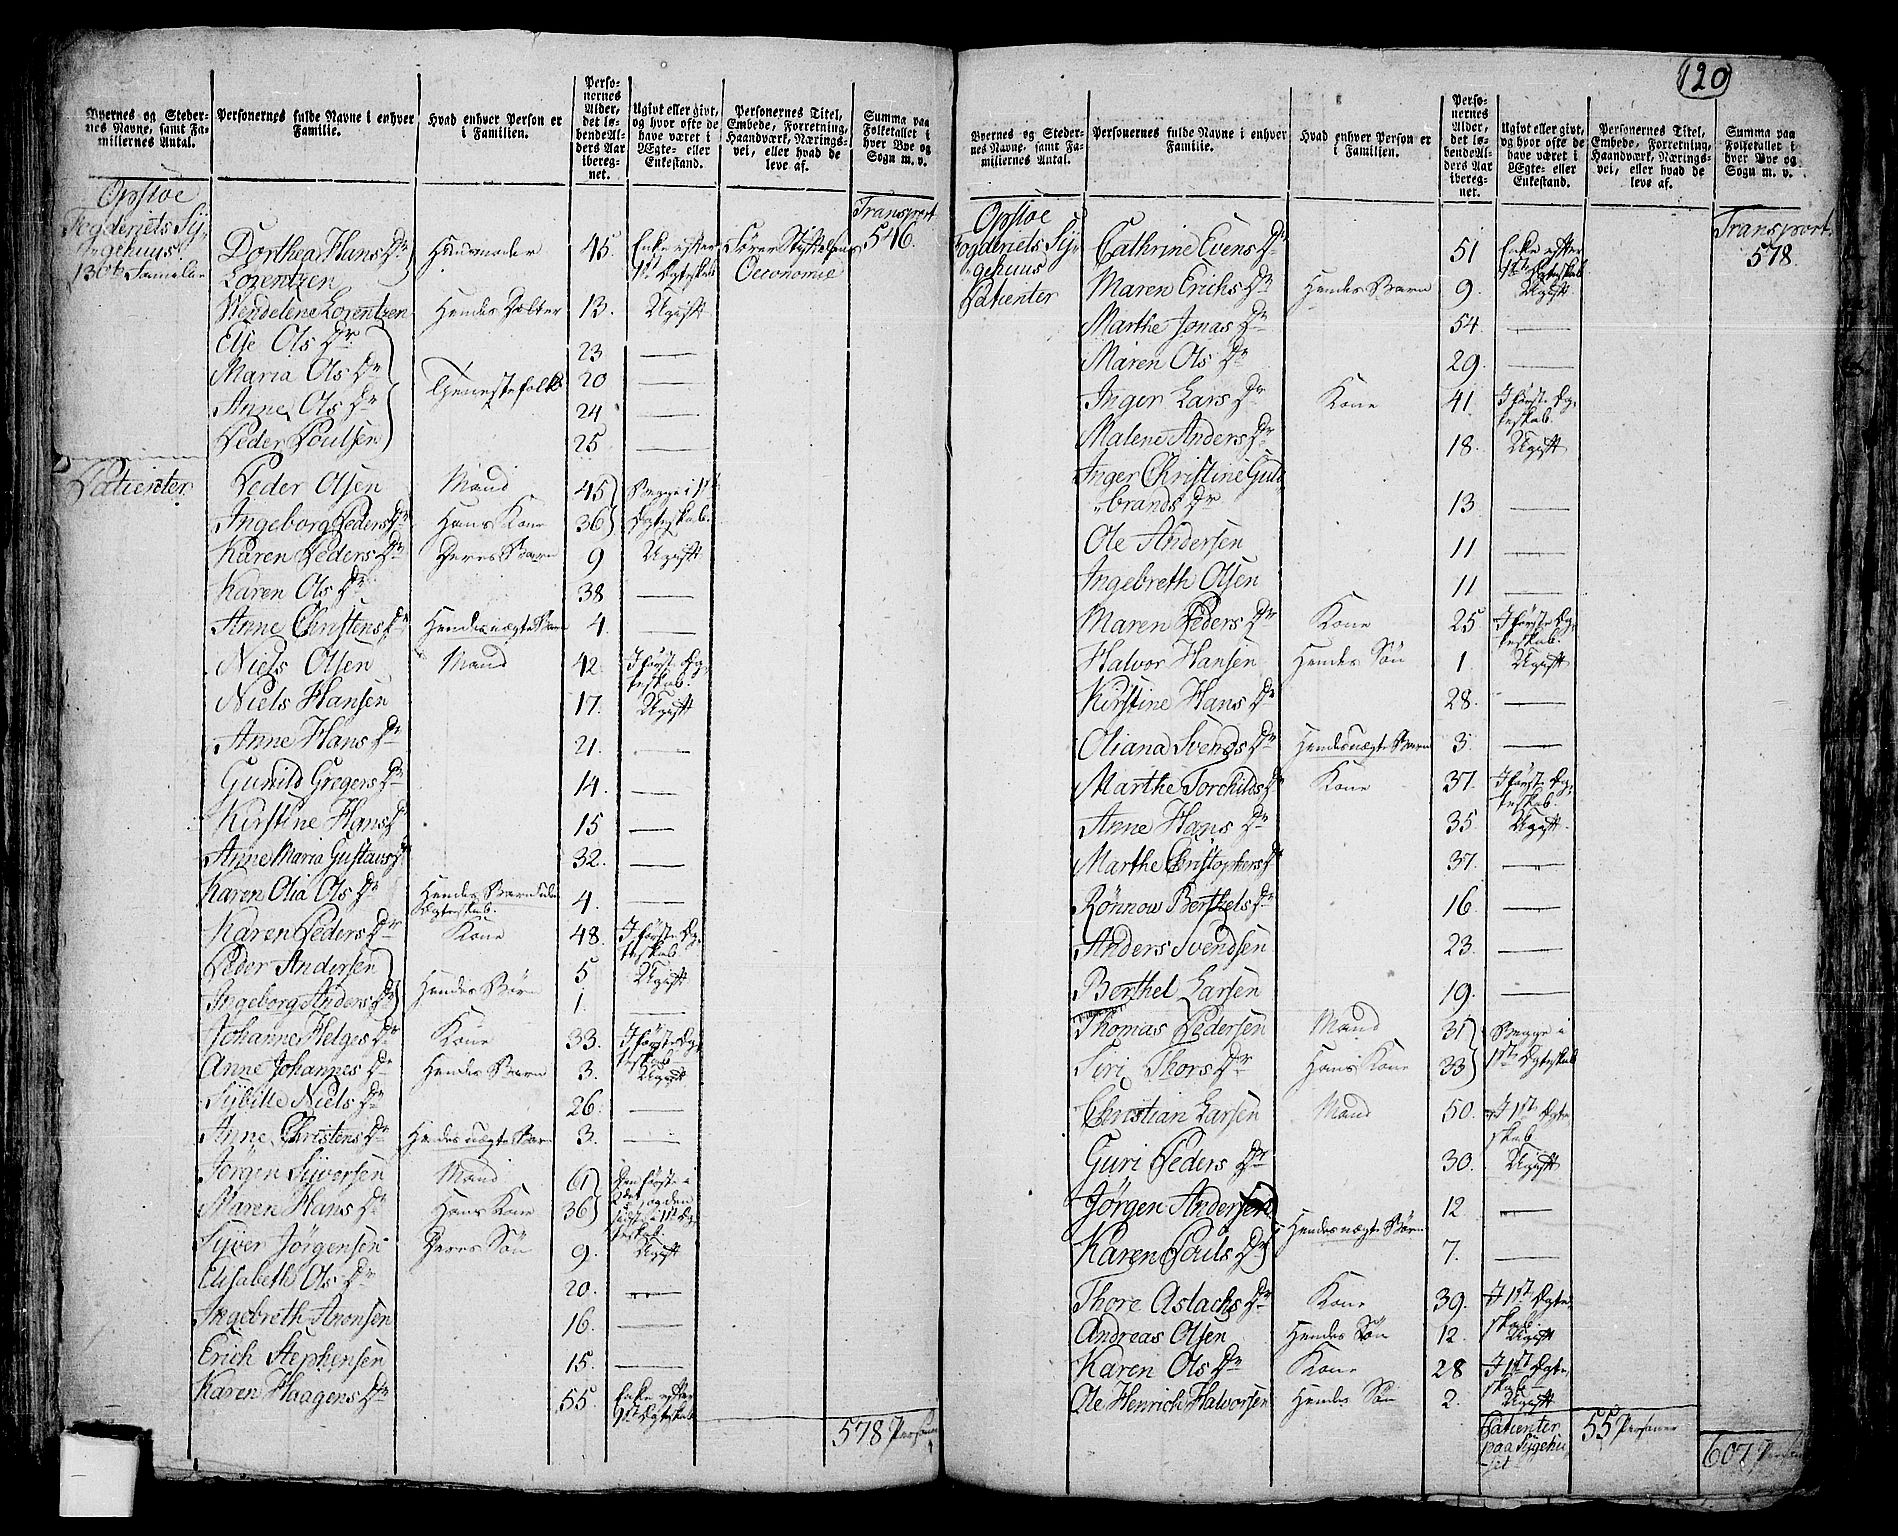 120
Byernes og Stedernes Navne, samt Familiernes Antal.
Personernes fulde Navne i enhver Familie.
Hvad enhver Person er i Familien.
Personernes Alder, det løbendeAlders Aar iberegnet.
Ugivt eller givt, og hvor ofte de have været i Ægte- eller Enkestand.
Personernes Titel, Embede, Forretning, Haandværk, Næringsvei, eller hvad de leve af.
Summa paa Folketallet i hver Bye og Sogn m. v.
Opstoe
Fogderiets Sygehuus
Transport
546.
Dorthea Hans Dr Lorentzen Huusmoder 45. Enke efter 1st Ægteskab Fører Stiftelsens Oeconomie
Wendelene Lorentzen Hendes Datter 13. Ugift
Else Ols Dr 23 —
Maria Ols Dr 20 —
Tjenestefolk
Anne Ols Dr 24 —
Peder Poulsen 25 —
Patienter
Peder Olsen Mand 45 Begge i 1st
Ingeborg Peders Dr Hans Kone 36 Ægteskab.
Karen Peders Dr Deres Barn 9 Ugift
Karen Ols Dr 38 —
Anne Christens Dr Hendes uægte Barn 4. —
Niels Olsen Mand 42. I første Ægteskab.
Niels Hansen 17. Ugift
Anne Hans Dr 21. —
Gunild Gregers Dr 14. —
Kirstine Hans Dr 15 —
Anne Maria Gustavs Dr 32. —
Karen Olia Ols Dr Hendes Barn Ægteskab. 4. —
Karen Peders Dr Kone 48. I første Ægteskab
Peder Andersen 5 Ugift
Hendes Børn
Ingeborg Anders Dr 1. —
Johanne Helges Dr Kone 33. I første Ægteskab
Anne Johannes Dr Hendes Barn 3. Ugift
Sybille Niels Dr 26. —
Anne Christens Dr Hendes uægte Barn 3. —
Jørgen Syversen Mand 61 Den første i
Maren Hans Dr Hans Kone 36
Syver Jørgensen Deres Søn 9. Ugift
Elisabeth Ols Dr 20. —
Ingebreth Aronsen 16. —
Erich Stephensen 15. —
Karen Haagens Dr 55. Enke efter Ægteskab
578 Personer
Byernes og Stedernes Navne, samt Familiernes Antal.
Personernes fulde Navne i enhver Familie.
Hvad enhver Person er i Familien.
Personernes Alder, det løbendeAlders Aar iberegnet.
Ugivt eller givt, og hvor ofte de have været i Ægte- eller Enkestand.
Personernes Titel, Embede, Forretning, Haandværk, Næringsvei, eller hvad de leve af.
Summa paa Folketallet i hver Bye og Sogn m. v.
Opstoe
Fogderiets Sygehuus
Patienter
Transport.
578.
Cathrine Evens Dr 51 Enke efter 1ste Ægteskab
Maren Erichs Dr Hendes Barn 9. Ugift
Marthe Jonas Dr 54. —
Maren Ols Dr 29. —
Inger Lars Dr Kone 41 I første Ægteskab.
Malene Anders Dr 18. Ugift
Inger Christine Guldbrands Dr 13. —
Ole Andersen 11 —
Ingebreth Olsen 11 —
Maren Peders Dr Kone 25 I første Ægteskab.
Halvor Hansen Hendes Søn 1. Ugift
Kirstine Hans Dr 28. —
Oliana Svends Dr Hendes uægte Barn 3. —
Marthe Torchilds Dr Kone 37. I første Ægteskab.
Anne Hans Dr 35. Ugift
Marthe Christophers Dr 37. —
Rønnow Berthels Dr 16 —
Anders Svendsen 23. —
Berthel Larsen 19. —
Thomas Pedersen Mand 31 Begge i
Siri Thors Dr Hans Kone 33 1ste Ægteskab
Christian Larsen Mand 50. I 1ste Ægteskab
Guri Peders Dr 30. Ugift
Jørgen Andersen 12 —
Hendes uægte Børn
Karen Pouls Dr 7. —
Thore Aslachs Dr Kone 39. I 1st Ægteskab.
Andreas Olsen Hendes Søn 12. Ugift
Karen Ols Dr Kone 28 I 1st Ægteskab
Ole Henrich Halvorsen Hendes Søn 2. Ugift
Patienter paa Sygehuset 55 Personer
607 Personer